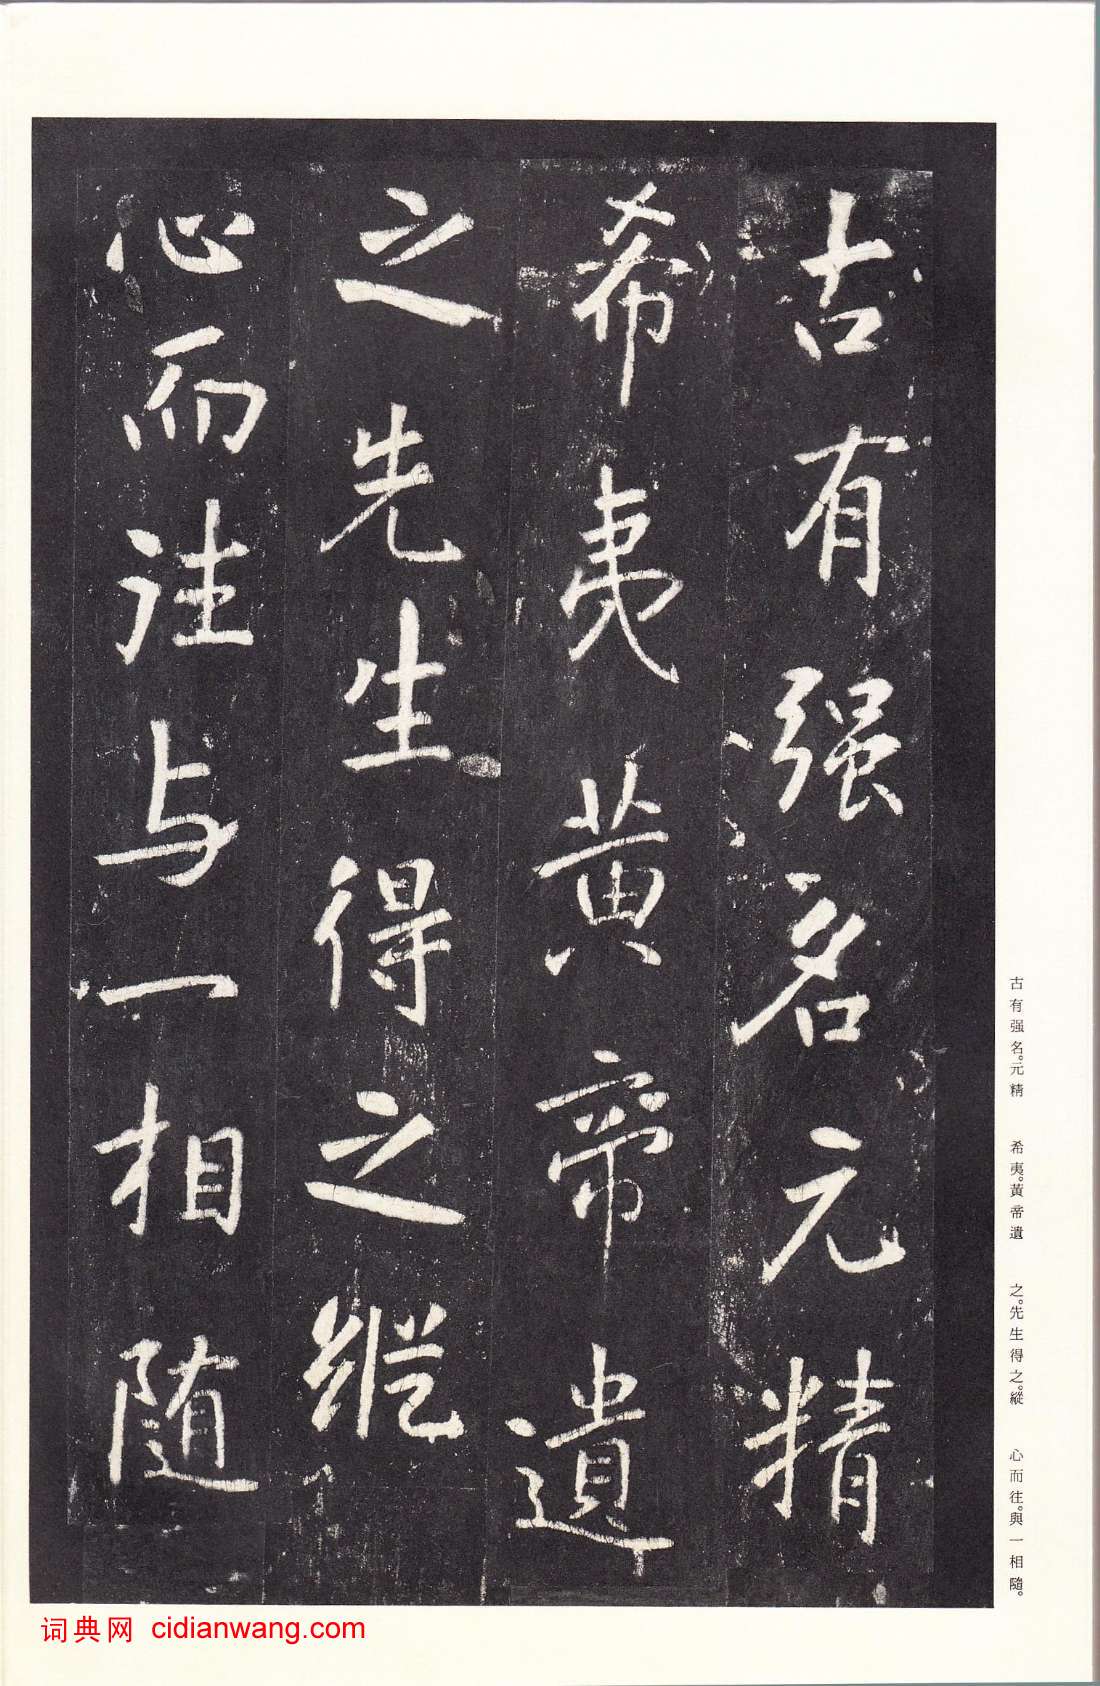 古有强名元精
希夷黄帝遺
之先生得之縱
心而往与一相随
古有强名。元精　希夷。黃帝遺　之。先生得之。縱　心而往。與一相隨。
词典网 cidianwang.com